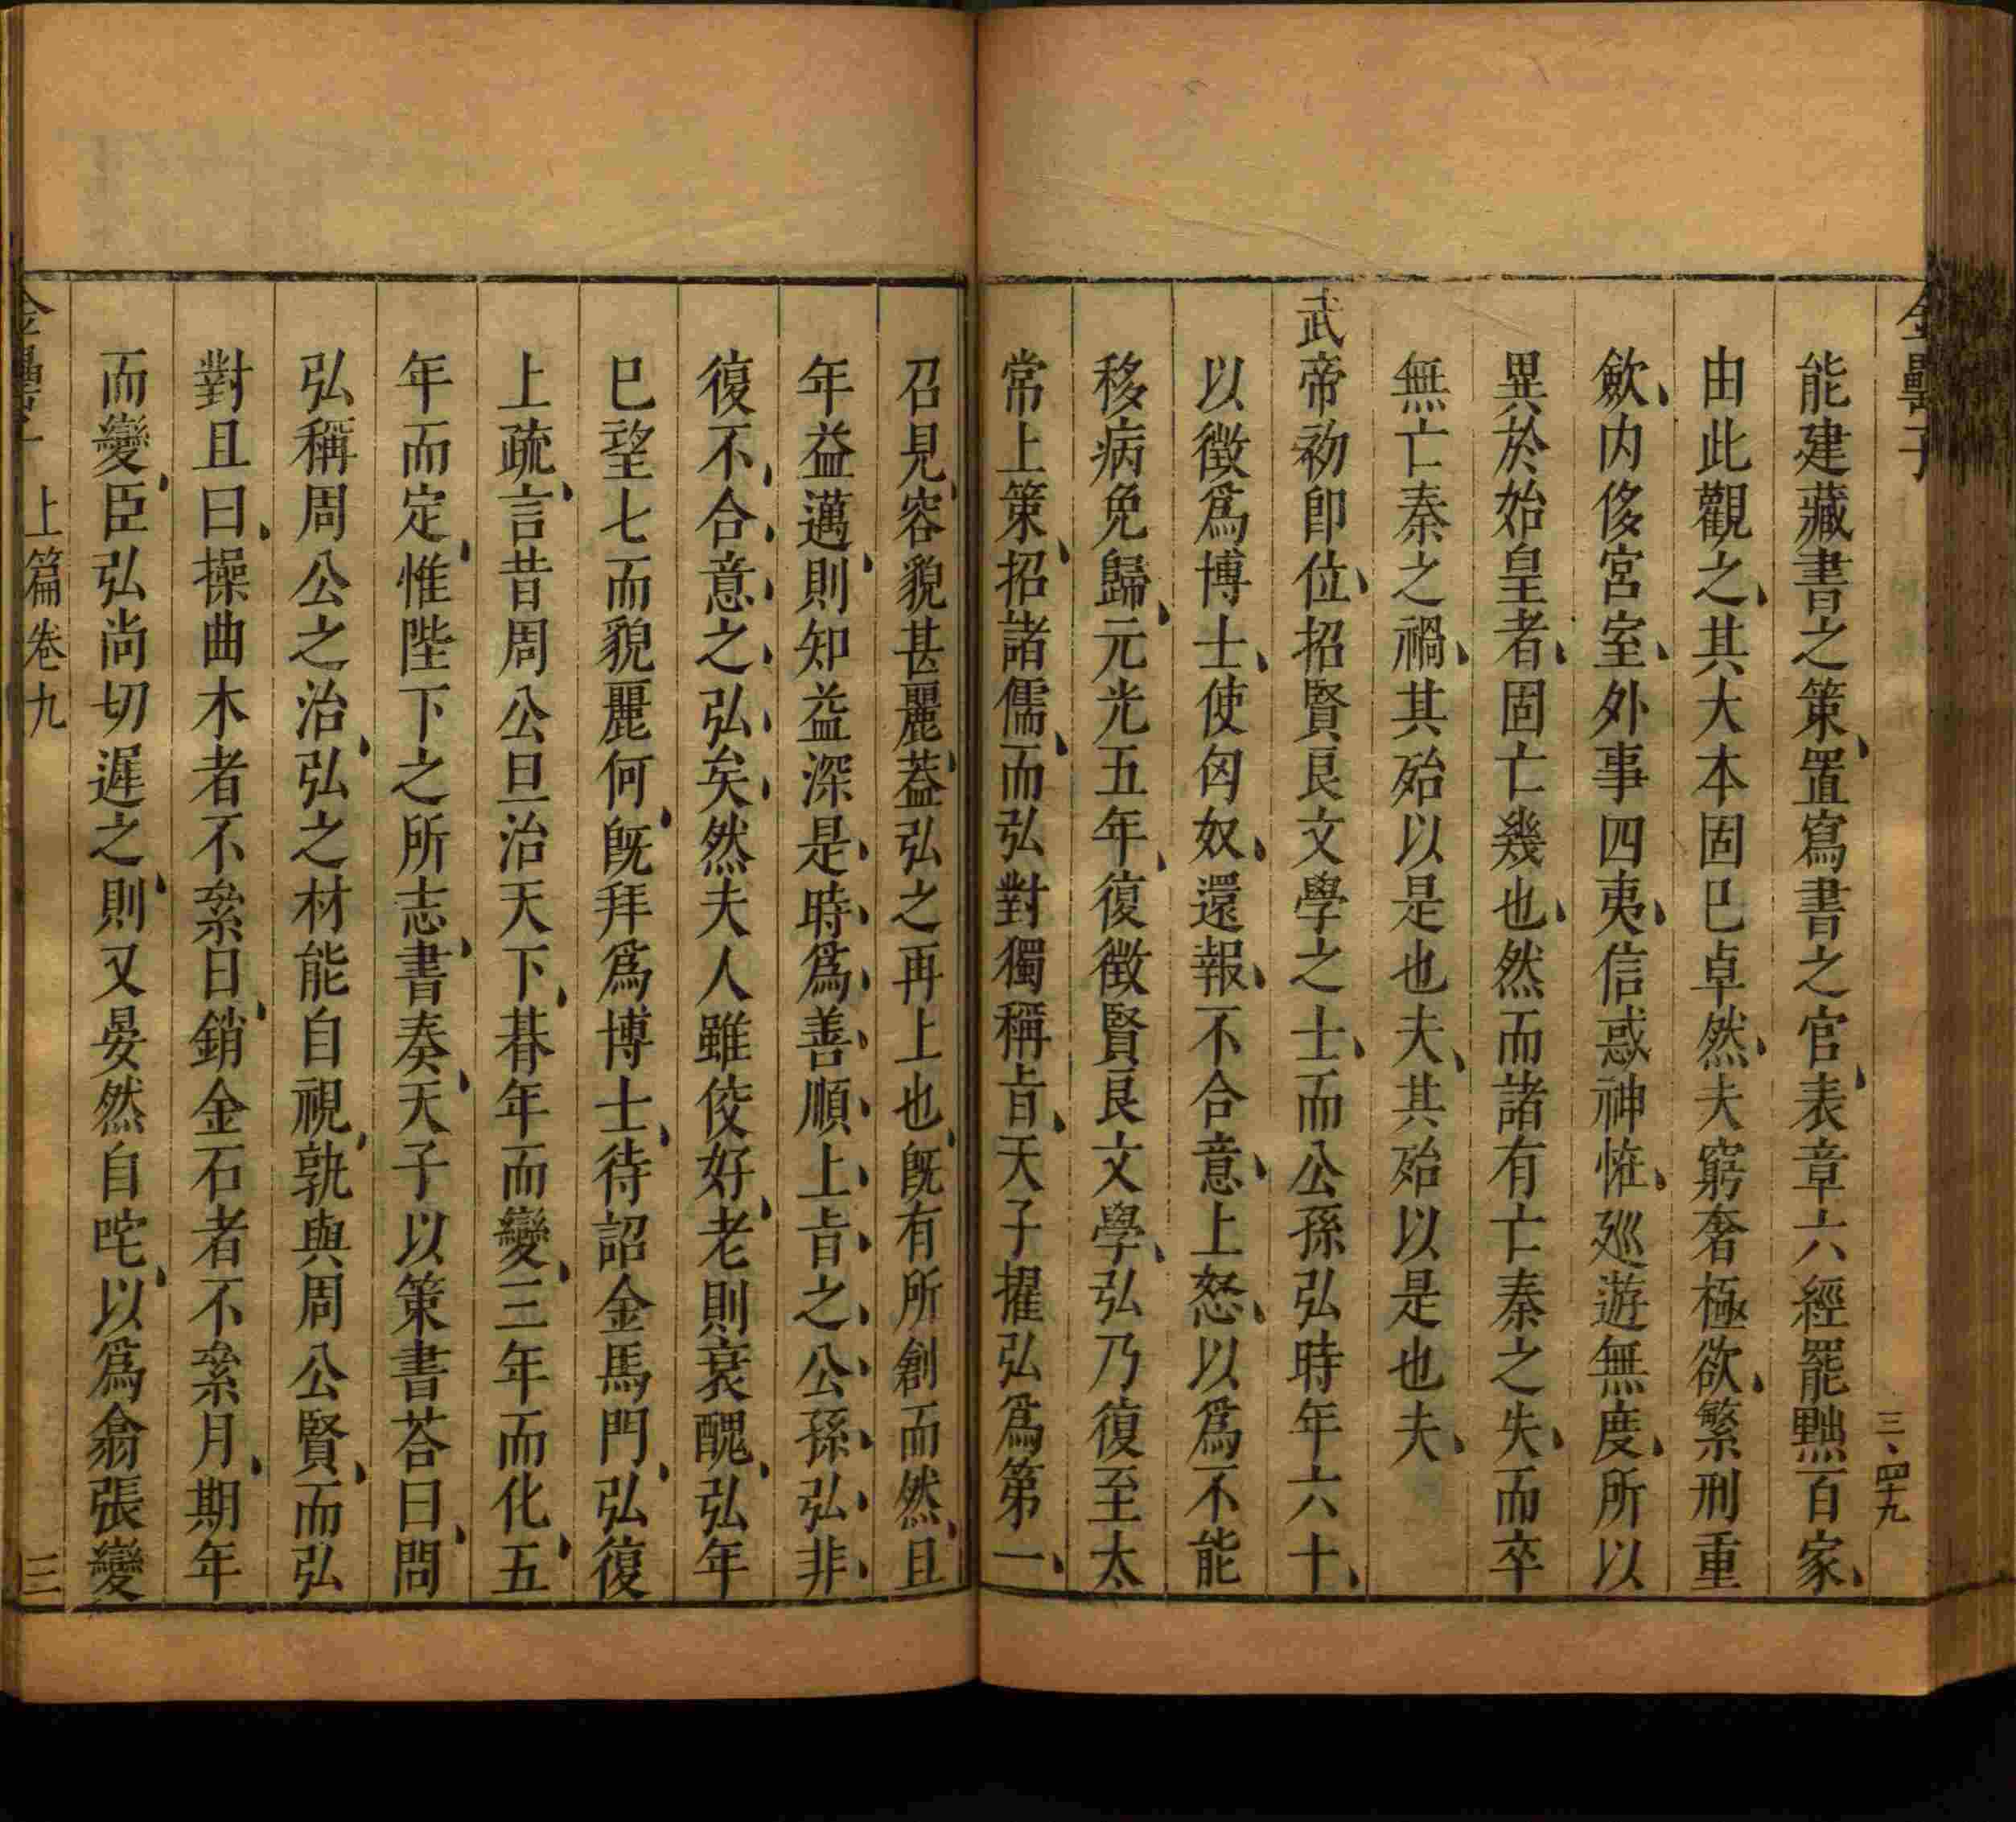 能建藏書之策置寫書之官表章六經罷黜百家
由此觀之其大本固巳卓然夫窮奢極欲繁刑重
歛内侈宮室外事四夷信惑神恠廵遊無度所以
異於始皇者固亡幾也然而諸有亡秦之失而卒
無亡秦之禍其殆以是也夫其殆以是也夫
武帝初即位招賢良文學之士而公孫弘時年六十
以徵爲博士使匈奴還報不合意上怒以爲不能
移病免歸元光五年復徵賢良文學弘乃復至太
常上策招諸儒而弘對獨稱㫖天子擢弘爲第一
召見容貌甚麗葢弘之再上也旣有所創而然且
年益邁則知益深是時爲善順上㫖之公孫弘非
復不合意之弘矣然夫人雖佼好老則衰醜弘年
巳望七而貌麗何旣拜爲博士待詔金馬門弘復
上疏言昔周公旦治天下朞年而變三年而化五
年而定惟陛下之所志書奏天子以策書荅曰問
弘稱周公之治弘之材能自視孰與周公賢而弘
對且曰操曲木者不絫日銷金石者不絫月期年
而變臣弘尚切遲之則又晏然自咤以爲翕張變
金罍子 上篇卷九 三